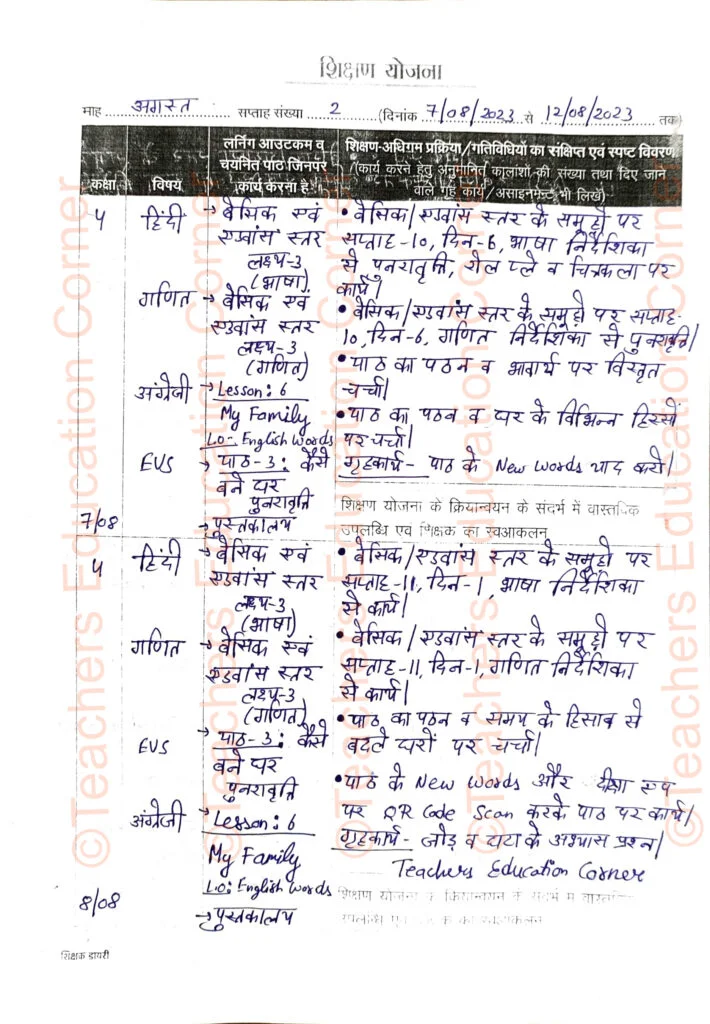 शिक्षण योजना
माह अगस्त सप्ताह संख्या 2 (दिनांक 7/08/2023 से 12/08/2023 तक)
कक्षा
विषय
लर्निंग आउटकम व
चयनित पाठ जिनपर
कार्य करना है
शिक्षण-अधिगम प्रक्रिया/गतिविधियों का संक्षिप्त एवं स्पष्ट विवरण
(कार्य करने हेतु अनुमानित कालांशों की संख्या तथा दिए जाने
वाले गृह कार्य/असाइनमेंट भी लिखें)
5
हिंदी
→ बेसिक एवं
एडवांस स्तर
लक्ष्य-3
(भाषा)
• बेसिक/एडवांस स्तर के समूहों पर
सप्ताह-10, दिन-6, भाषा निर्देशिका
से पुनरावृत्ति, रोल प्ले व चित्रकला पर
कार्य।
गणित
→ बेसिक एवं
एडवांस स्तर
लक्ष्य-3
(गणित)
• बेसिक/एडवांस स्तर के समूहों पर सप्ताह-
10, दिन-6, गणित निर्देशिका से पुनरावृत्ति।
अंग्रेजी
→ Lesson: 6
My Family
L.O-. English Words
• पाठ का पठन व भावार्थ पर विस्तृत
चर्चा।
EVS
→ पाठ-3: कैसे
बने घर
पुनरावृत्ति
→ पुस्तकालय
• पाठ का पठन व घर के विभिन्न हिस्सों
पर चर्चा।
गृहकार्य- पाठ के New Words याद करो।
7/08
शिक्षण योजना के क्रियान्वयन के संदर्भ में वास्तविक
उपलब्धि एवं शिक्षक का स्वआकलन
5
हिंदी
→ बेसिक एवं
एडवांस स्तर
लक्ष्य-3
(भाषा)
• बेसिक/एडवांस स्तर के समूहों पर
सप्ताह-11, दिन-1, भाषा निर्देशिका
से कार्य।
गणित
→ बेसिक एवं
एडवांस स्तर
लक्ष्य-3
(गणित)
• बेसिक/एडवांस स्तर के समूहों पर
सप्ताह-11, दिन-1, गणित निर्देशिका
से कार्य।
EVS
→ पाठ-3: कैसे
बने घर
पुनरावृत्ति
• पाठ का पठन व समय के हिसाब से
बदले घरों पर चर्चा।
अंग्रेजी
→ Lesson: 6
My Family
L.O: English Words
→ पुस्तकालय
• पाठ के New Words और दीक्षा एप
पर QR Code Scan करके पाठ पर कार्य।
गृहकार्य- जोड़ व घटा के अभ्यास प्रश्न।
Teachers Education Corner
8/08
शिक्षण योजना के क्रियान्वयन के संदर्भ में
शिक्षक डायरी
©Teachers Education Corner
©Teachers Education Corner
©Teachers Education Corner
©Teachers Education Corner